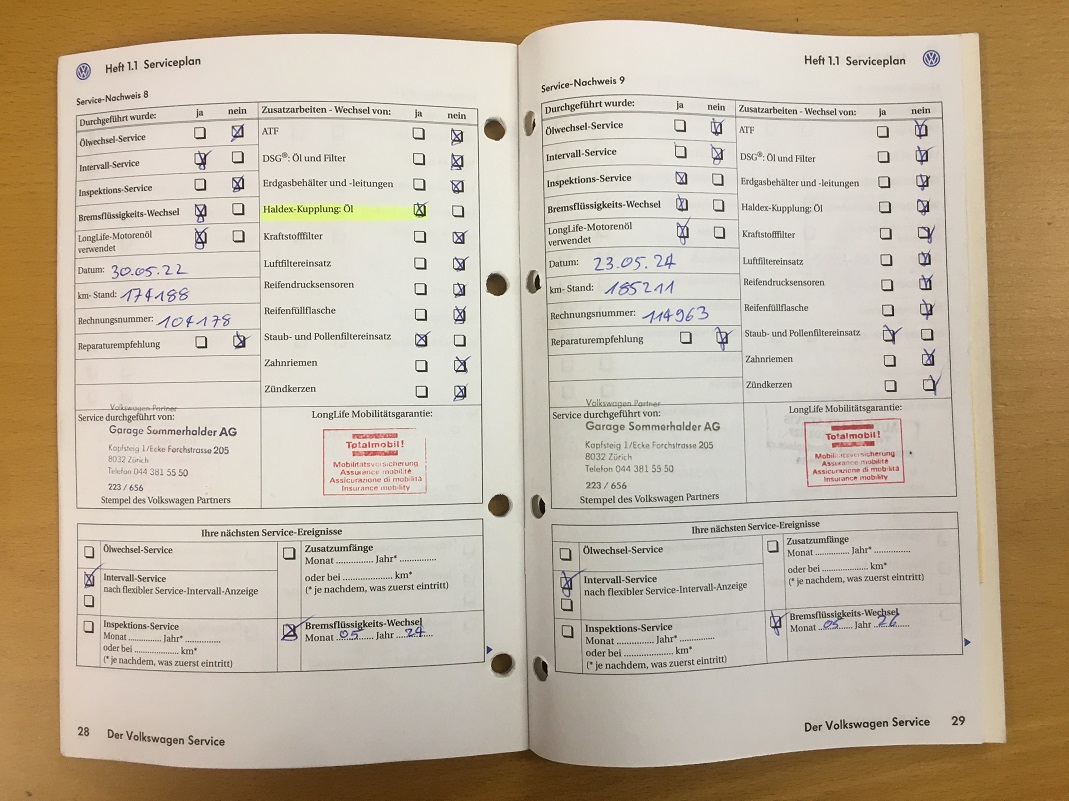 Heft 1.1 Serviceplan
Service-Nachweis 8
Durchgeführt wurde: ja nein
Ölwechsel-Service
Intervall-Service
Inspektions-Service
Bremsflüssigkeits-Wechsel
LongLife-Motorenöl
verwendet
Datum: 30.05.22
km- Stand: 174188
Rechnungsnummer: 104178
Reparaturempfehlung
Zusatzarbeiten - Wechsel von: ja nein
ATF
DSG®: Öl und Filter
Erdgasbehälter und -leitungen
Haldex-Kupplung: Öl
Kraftstofffilter
Luftfiltereinsatz
Reifendrucksensoren
Reifenfüllflasche
Staub- und Pollenfiltereinsatz
Zahnriemen
Zündkerzen
Volkswagen Partner
Service durchgeführt von:
Garage Sommerhalder AG
Kapfsteig 1/Ecke Forchstrasse 205
8032 Zürich
Telefon 044 381 55 50
223 / 656
Stempel des Volkswagen Partners
LongLife Mobilitätsgarantie:
Totalmobil!
Mobilitätsversicherung
Assurance mobilité
Assicurazione di mobilità
Insurance mobility
Ihre nächsten Service-Ereignisse
Ölwechsel-Service
Intervall-Service
nach flexibler Service-Intervall-Anzeige
Inspektions-Service
Monat ............ Jahr* ............
oder bei .................... km*
(* je nachdem, was zuerst eintritt)
Zusatzumfänge
Monat ............ Jahr* ............
oder bei .................... km*
(* je nachdem, was zuerst eintritt)
Bremsflüssigkeits-Wechsel
Monat 05 Jahr 24
28 Der Volkswagen Service
Heft 1.1 Serviceplan
Service-Nachweis 9
Durchgeführt wurde: ja nein
Ölwechsel-Service
Intervall-Service
Inspektions-Service
Bremsflüssigkeits-Wechsel
LongLife-Motorenöl
verwendet
Datum: 23.05.24
km- Stand: 185211
Rechnungsnummer: 114963
Reparaturempfehlung
Zusatzarbeiten - Wechsel von: ja nein
ATF
DSG®: Öl und Filter
Erdgasbehälter und -leitungen
Haldex-Kupplung: Öl
Kraftstofffilter
Luftfiltereinsatz
Reifendrucksensoren
Reifenfüllflasche
Staub- und Pollenfiltereinsatz
Zahnriemen
Zündkerzen
Volkswagen Partner
Service durchgeführt von:
Garage Sommerhalder AG
Kapfsteig 1/Ecke Forchstrasse 205
8032 Zürich
Telefon 044 381 55 50
223 / 656
Stempel des Volkswagen Partners
LongLife Mobilitätsgarantie:
Totalmobil!
Mobilitätsversicherung
Assurance mobilité
Assicurazione di mobilità
Insurance mobility
Ihre nächsten Service-Ereignisse
Ölwechsel-Service
Intervall-Service
nach flexibler Service-Intervall-Anzeige
Inspektions-Service
Monat ............ Jahr* ............
oder bei .................... km*
(* je nachdem, was zuerst eintritt)
Zusatzumfänge
Monat ............ Jahr* ............
oder bei .................... km*
(* je nachdem, was zuerst eintritt)
Bremsflüssigkeits-Wechsel
Monat 05 Jahr 26
Der Volkswagen Service 29